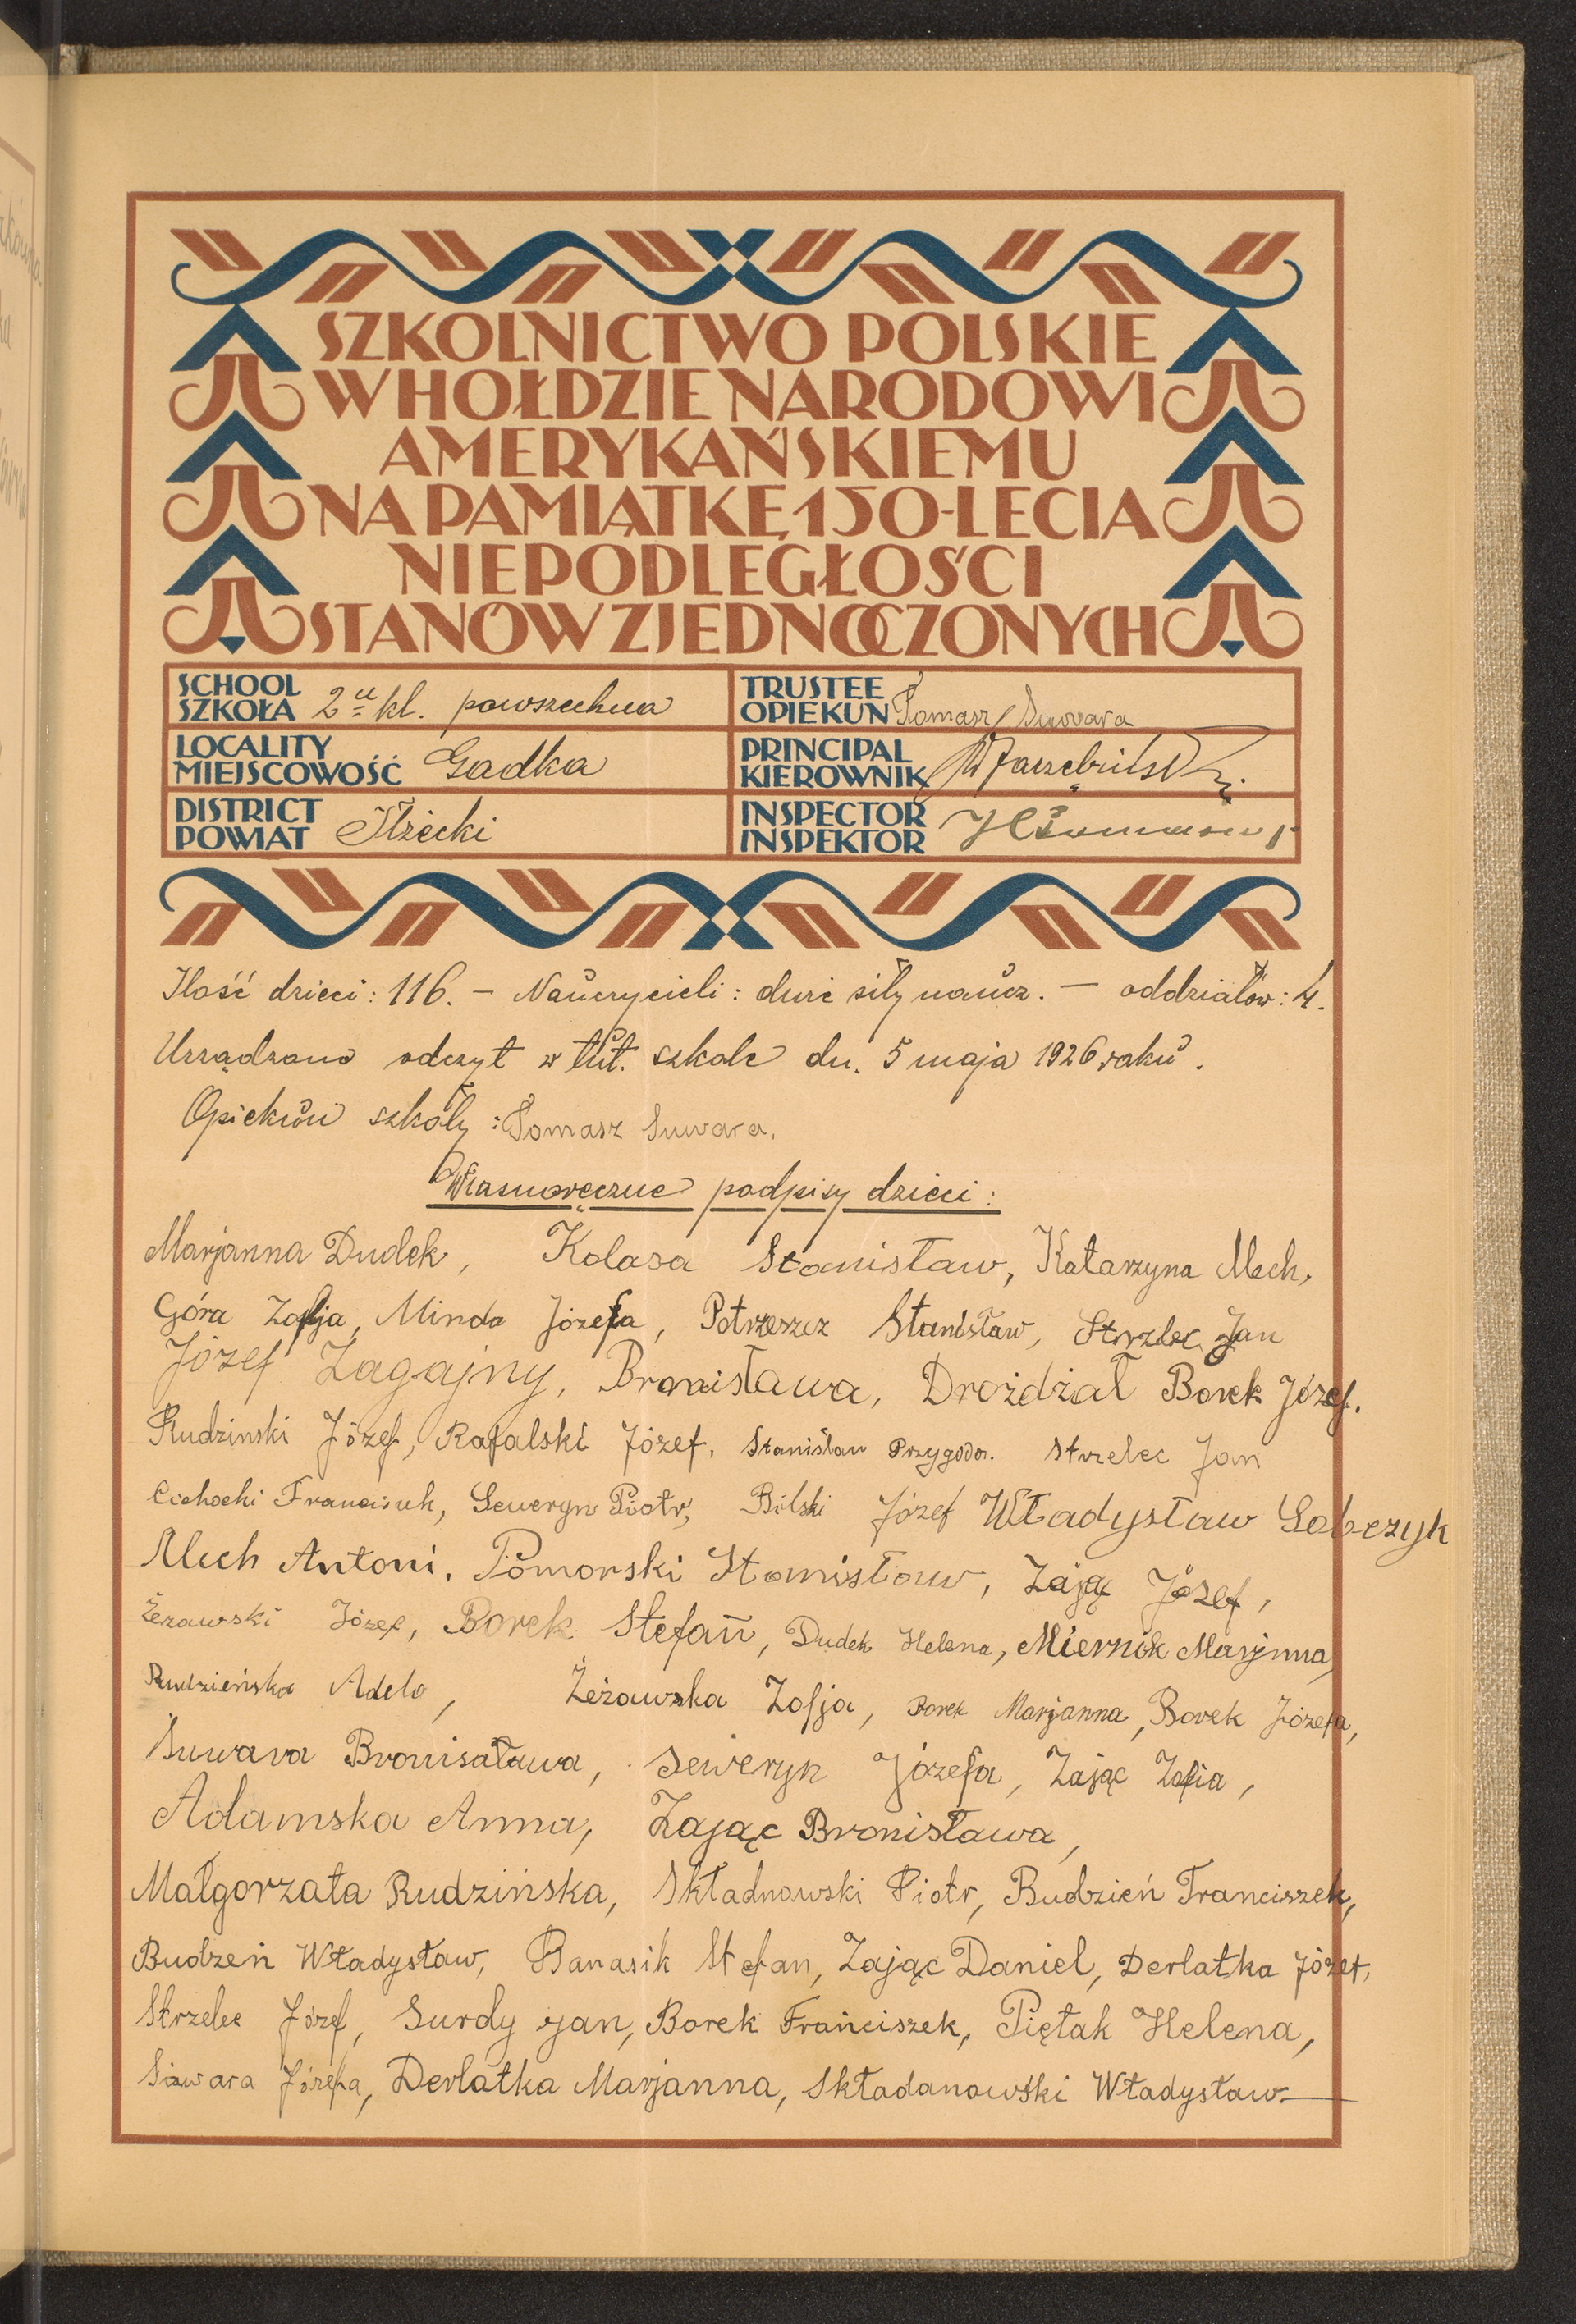 SZKOLNICTWO POLSKIE
W HOŁDZIE NARODOWI
AMERYKAŃSKIEMU
NA PAMIĄTKĘ 150-LECIA
NIEPODLEGŁOŚCI
STANÓW ZJEDNOCZONYCH
SCHOOL
SZKOŁA 2 u kl. powszechna
TRUSTEE
OPIEKUN Tomasz Suwara
LOCALITY
MIEJSCOWOŚĆ Gadka
PRINCIPAL
KIEROWNIK
DISTRICT
POWIAT Iłżecki
INSPECTOR
INSPEKTOR
Ilość dzieci: 116. – Nauczycieli: dwie siły naucz. – oddziałów: 4.
Urządzono odczyt w tut. szkole dn. 5 maja 1926 roku.
Opiekun szkoły: Tomasz Suwara.
Własnoręczne podpisy dzieci:
Marjanna Dudek, Kolasa Stanisław, Katarzyna Mech,
Góra Zofja, Minda Józefa, Potrzeszcz Stanisław, Strzlec Jan
Józef Zagajny, Bronisława, Drożdżał Borek Józef.
Rudzinski Józef, Rafalski Józef, Stanisław Przygoda. Strzelec Jan
Cichocki Franciszek, Seweryn Piotr, Bilski Józef Władysław Sobczyk
Mech Antoni, Pomorski Stanisław, Zając Józef,
Żeżawski Józef, Borek Stefan, Dudek Helena, Miernik Marjnna,
Rudzieńska Adela, Żeżawska Zofja, Borek Marjanna, Borek Józefa,
Suwara Bronisaława, Seweryn Józefa, Zając Zofia,
Adamska Anna, Zając Bronisława,
Małgorzata Rudzińska, Składnowski Piotr, Budzień Franciszek,
Budzeń Władysław, Banasik Stefan, Zając Daniel, Derlatka Józef,
Strzelec Józef, Surdy Jan, Borek Franciszek, Piętak Helena,
Suwara Józefa, Derlatka Marjanna, Składanowski Władysław